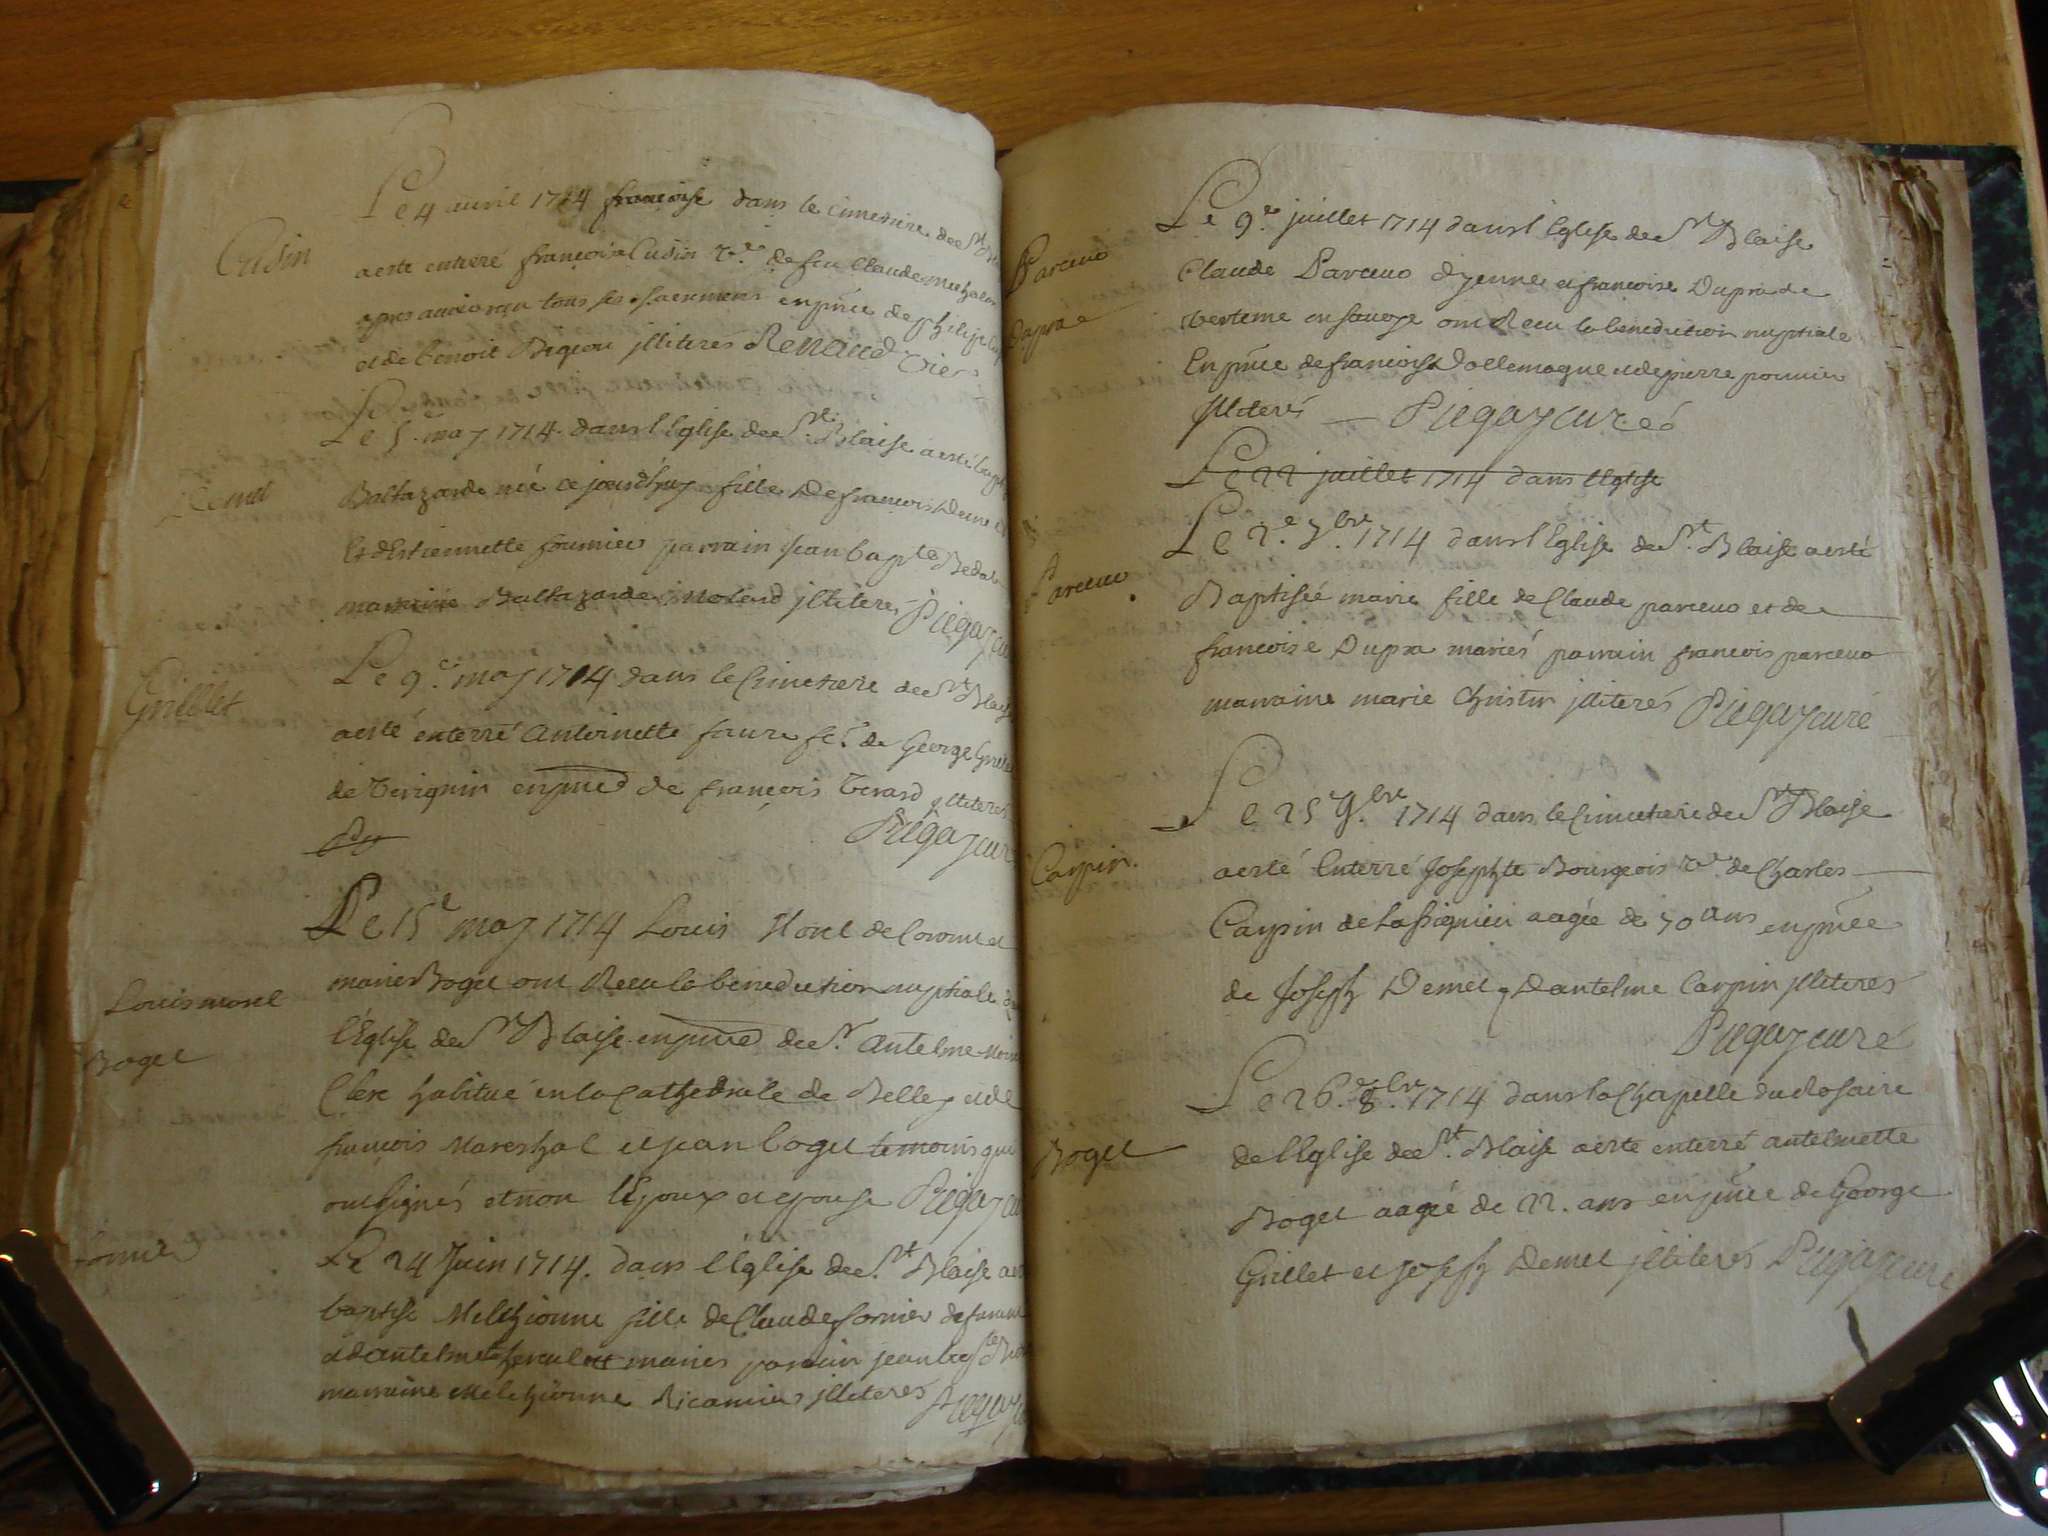 Cusin
Le 4 avril 1714 françoise dans le cimetiere de St
a esté enterré françoise Cusin ve. de feu Claude
apres avoir reçu tous ses sacremens en pnce de philip
et de benoit illiteres Renaud
Demet
Le 5 may 1714 dans l'Eglise de St. Blaise a esté
Baltazarde née ce jourdhuy fille De francois Deme
Et d'Estiennette fournier parrain jean bapte
marraine Baltazarde Molard illiteres Piegay
Grillet
Le 9e may 1714 dans le Cimetiere de St Blaise
a esté enterré Antoinette faure fe. de George
de Verignin en pnce de françois Verard illiteres
Piegay cur
Le 15e may 1714 Louis Morel de Coron et
Louis morel
marie Boget ont Receu la benediction nuptiale
Boget
l'Eglise de St Blaise en pnce de Sr. Antelme
Clerc habitué en la Cathedrale de Belley et de
françois Mareshal et jean boget temoins qui
ont signés et non l'Epoux et epouse Piegay
fornier
Le 24 Juin 1714. dans l'Eglise de St Blaise
baptisé Melchionne fille de Claude fornier
maries parrain jean
marraine Melchionne illiteres Piegay
Le 9e juillet 1714 dans l'Eglise de St Blaise
Parceuo
Claude Parceuo d'yenne et francoise Dupra de
Dupra
en savoye ont Receu la benediction nuptiale
En pnce de francois Dallemagne et de pierre
illiterés — Piegay curé
Le 22 juillet 1714 dans l'Eglise
Le 2e. 7bre. 1714 dans l'Eglise de St. Blaise a esté
Parceuo
Baptisée marie fille de Claude parceuo et de
francoise Dupra mariés parrain francois parceuo
marraine marie Christin illiterés Piegay curé
Le 25e 9bre 1714 dans le Cimetiere de St Blaise
Carpin.
a esté Enterré Josephte Bourgeois ve de Charles
Carpin de Lassignieu aagée de 70 ans en pnce
de Joseph Demet & d'antelme Carpin illiterés
Piegay curé
Le 26e. 8bre. 1714 dans la Chapelle du Rosaire
Boget
de l'Eglise de St. Blaise a esté enterré antelmette
Boget aagée de 22. ans en pnce de George
Grillet et joseph Demet illiterés Piegay curé